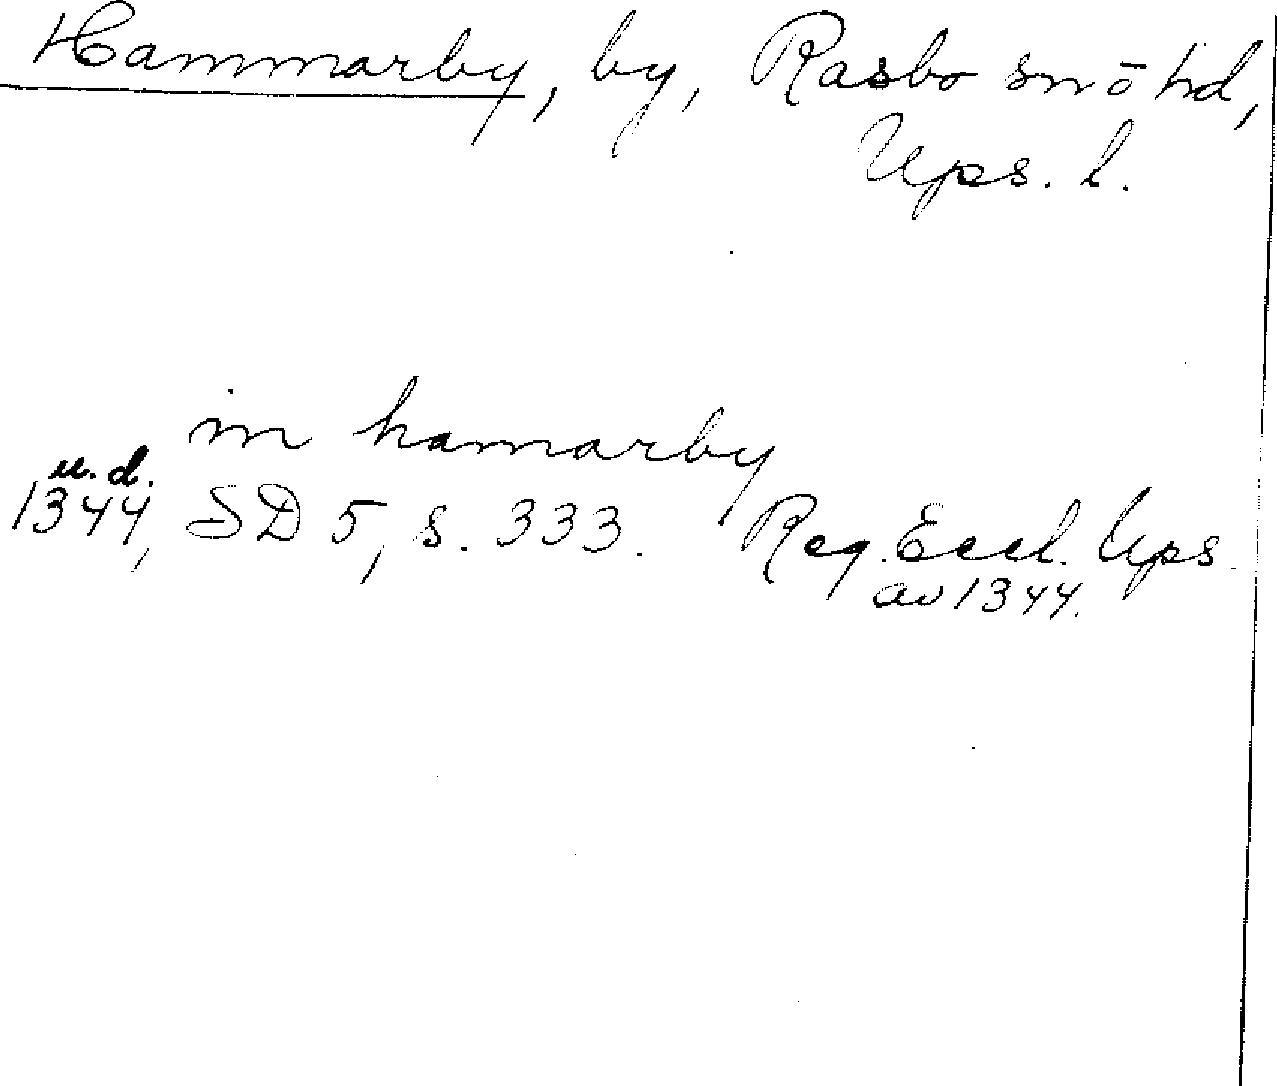 Hammarby, by, Rasbo sn o hd,
Ups. l.
in hamarby
u. d.
1344, SD 5, s. 333. Reg. Eccl. Ups
av 1344.